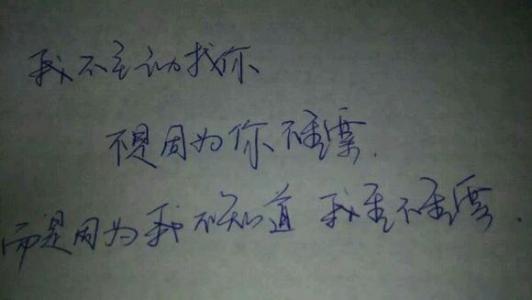 我不主动找你
不是因为你不重要.
而是因为我不知道 我重不重要.